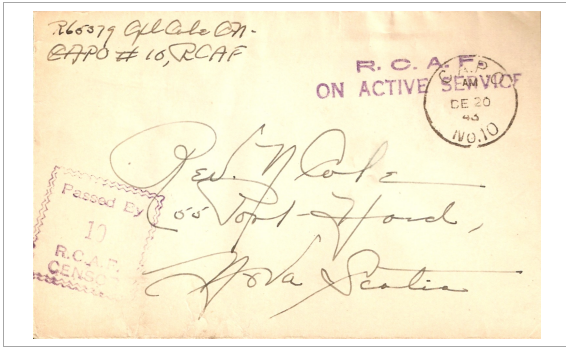 R65579 Cpl Cole C.N.
CAPO # 10, RCAF
R. C. A. F.
ON ACTIVE SERVICE
C.A.P.O.
AM
DE 20
43
NO.10
Rev. N Cole
Port
Nova Scotia
Passed By
10
R.C.A.F.
CENSOR